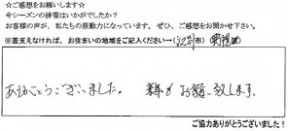 ☆ご感想をお願いします☆
今シーズンの排雪はいかがでしたか?
お客様の声が、私たちの原動力になっています。ぜひ、ご感想をお聞かせ下さい。
※差支えなければ、お住まいの地域をご記入ください→(江別市)
ありがとうございました。 お願い致します。
ご協力ありがとうございました!